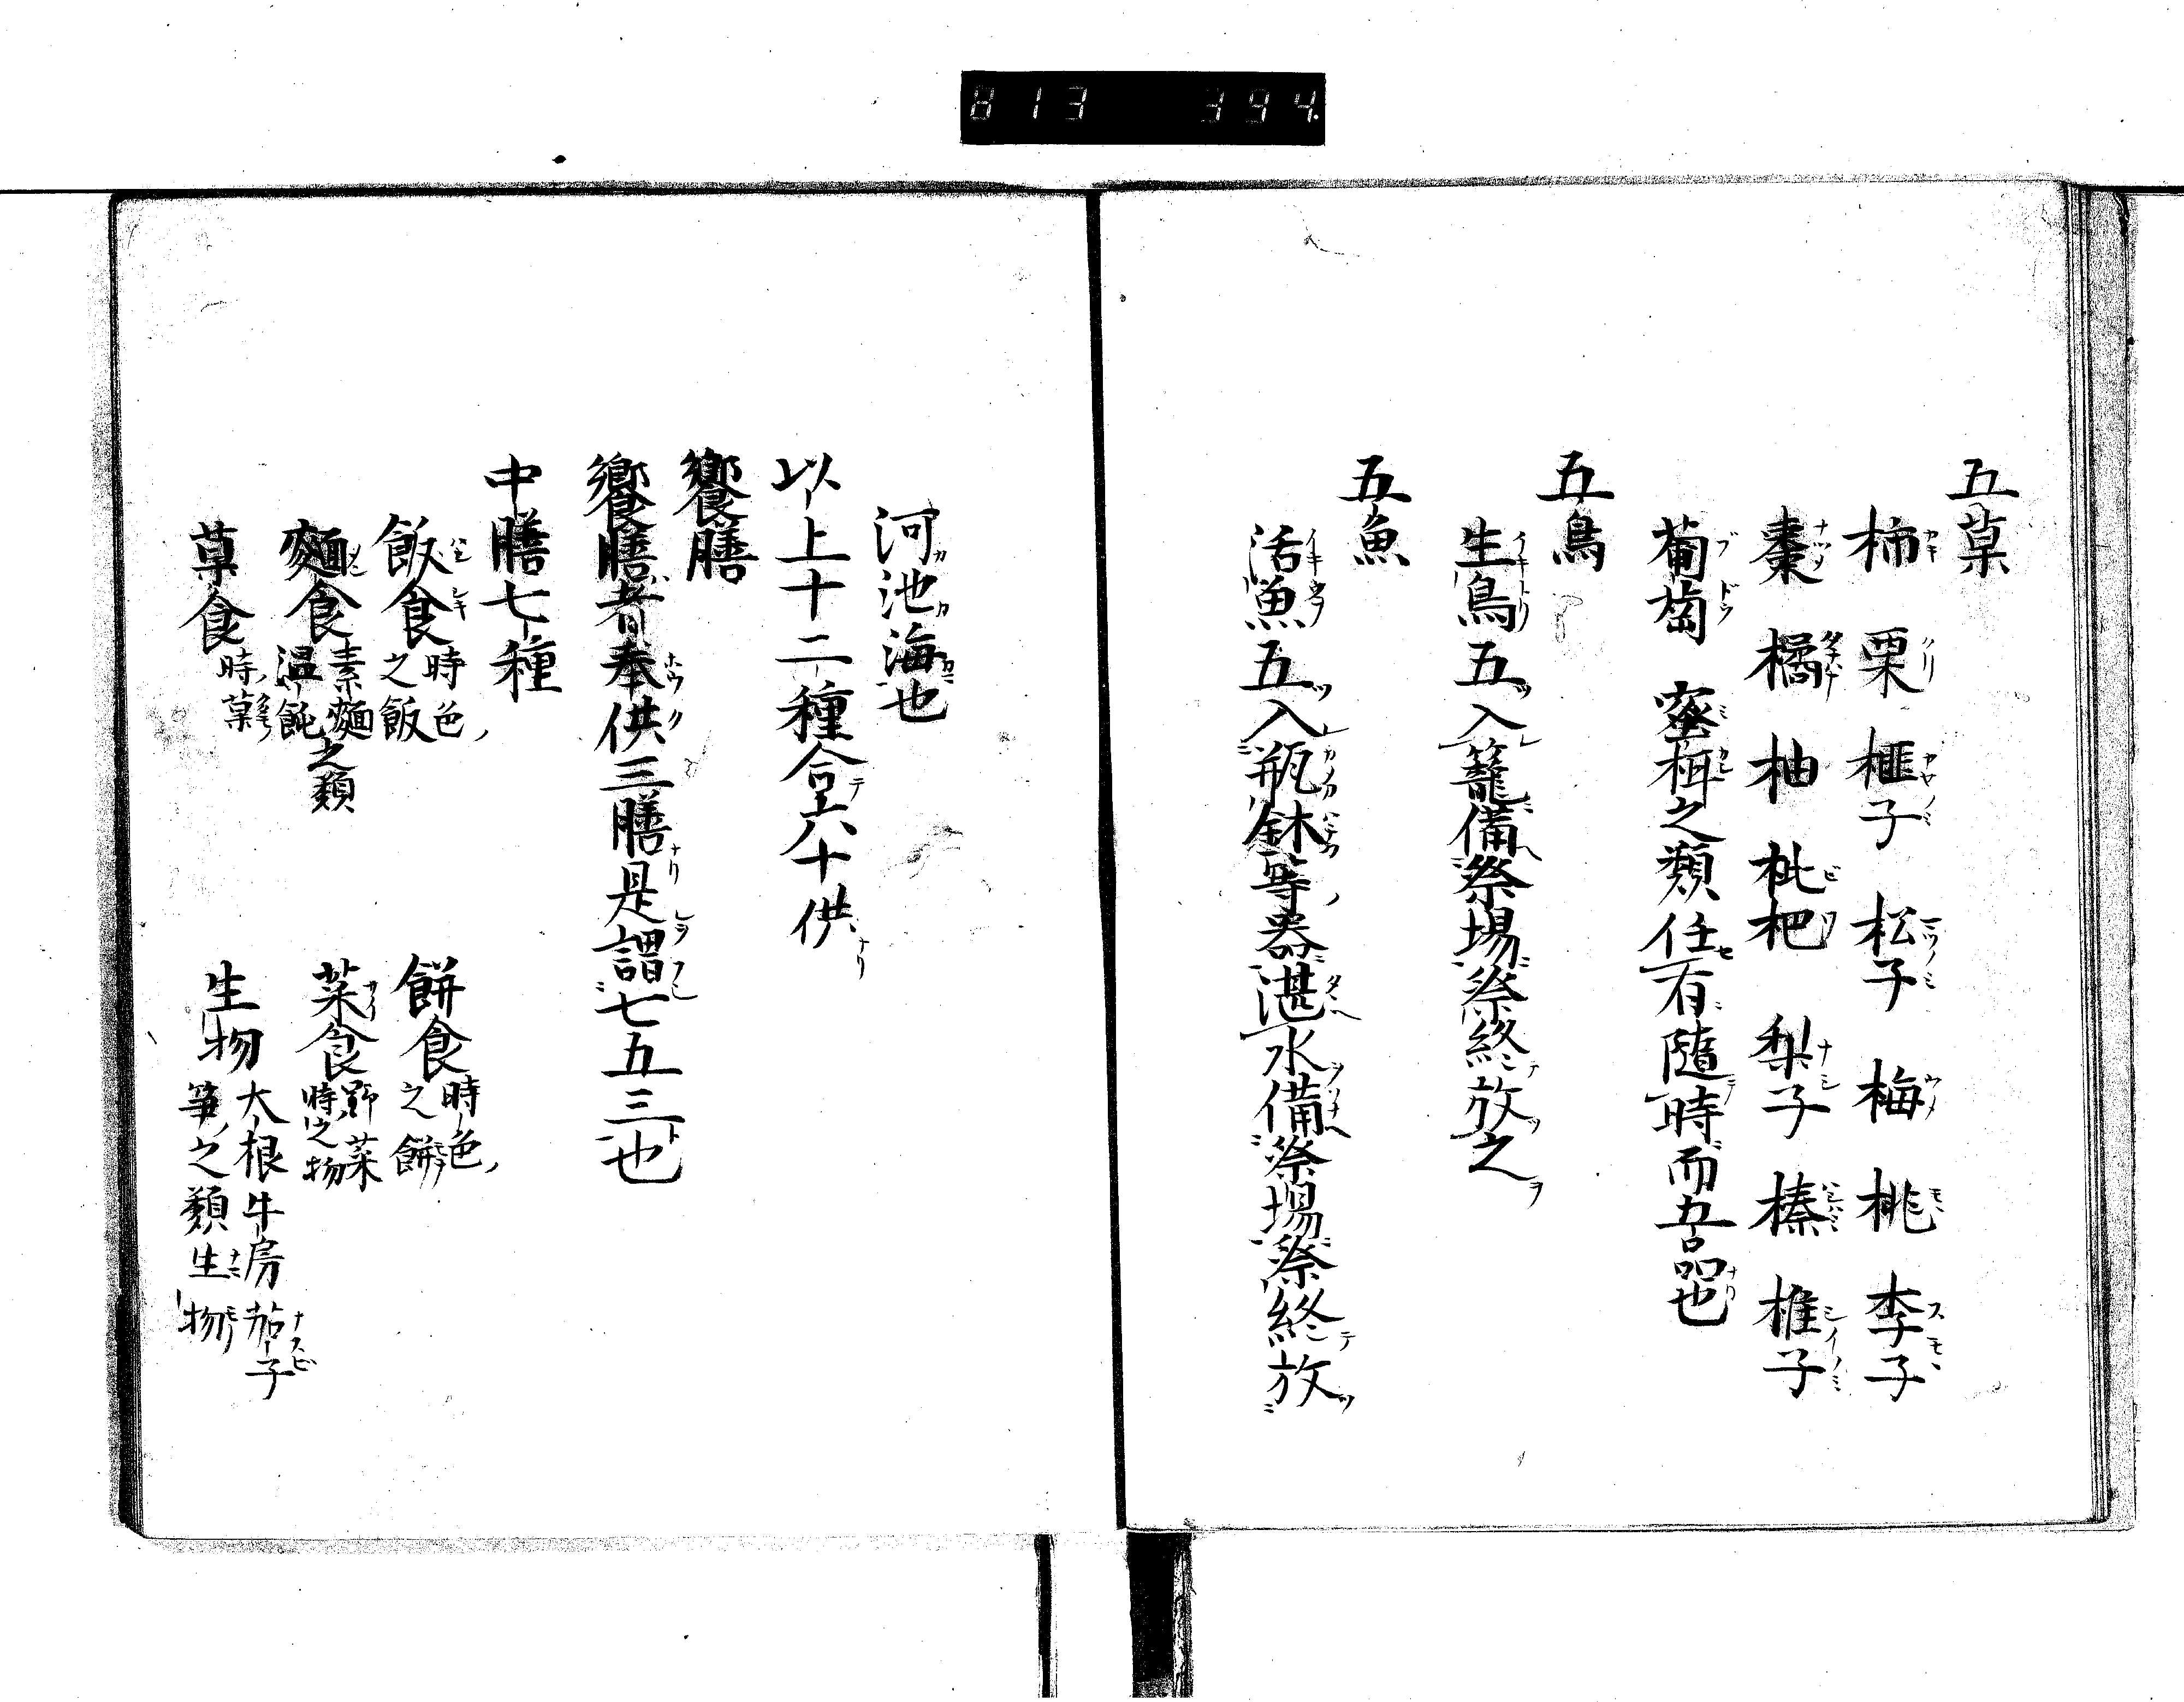 813 394.
五菓
柿 栗 榧子 松子 梅 桃 李子
棗 橘 柚 枇杷 梨子 榛 椎子
葡萄 蜜柑之類任有隨時而五品也
五鳥
生鳥五入籠備祭場祭終放之
五魚
活魚五入瓶鉢等器湛水備祭場祭終放
河池海也
以上十二種合六十供
饗膳
饗膳者奉供三膳是謂七五三也
中膳七種
飯食 時色之飯 餅食 時色之餅
麵食 素麵之類温飩 菜食 野菜時之物
菓食 時菓 生物 大根牛房茄子笋之類生物